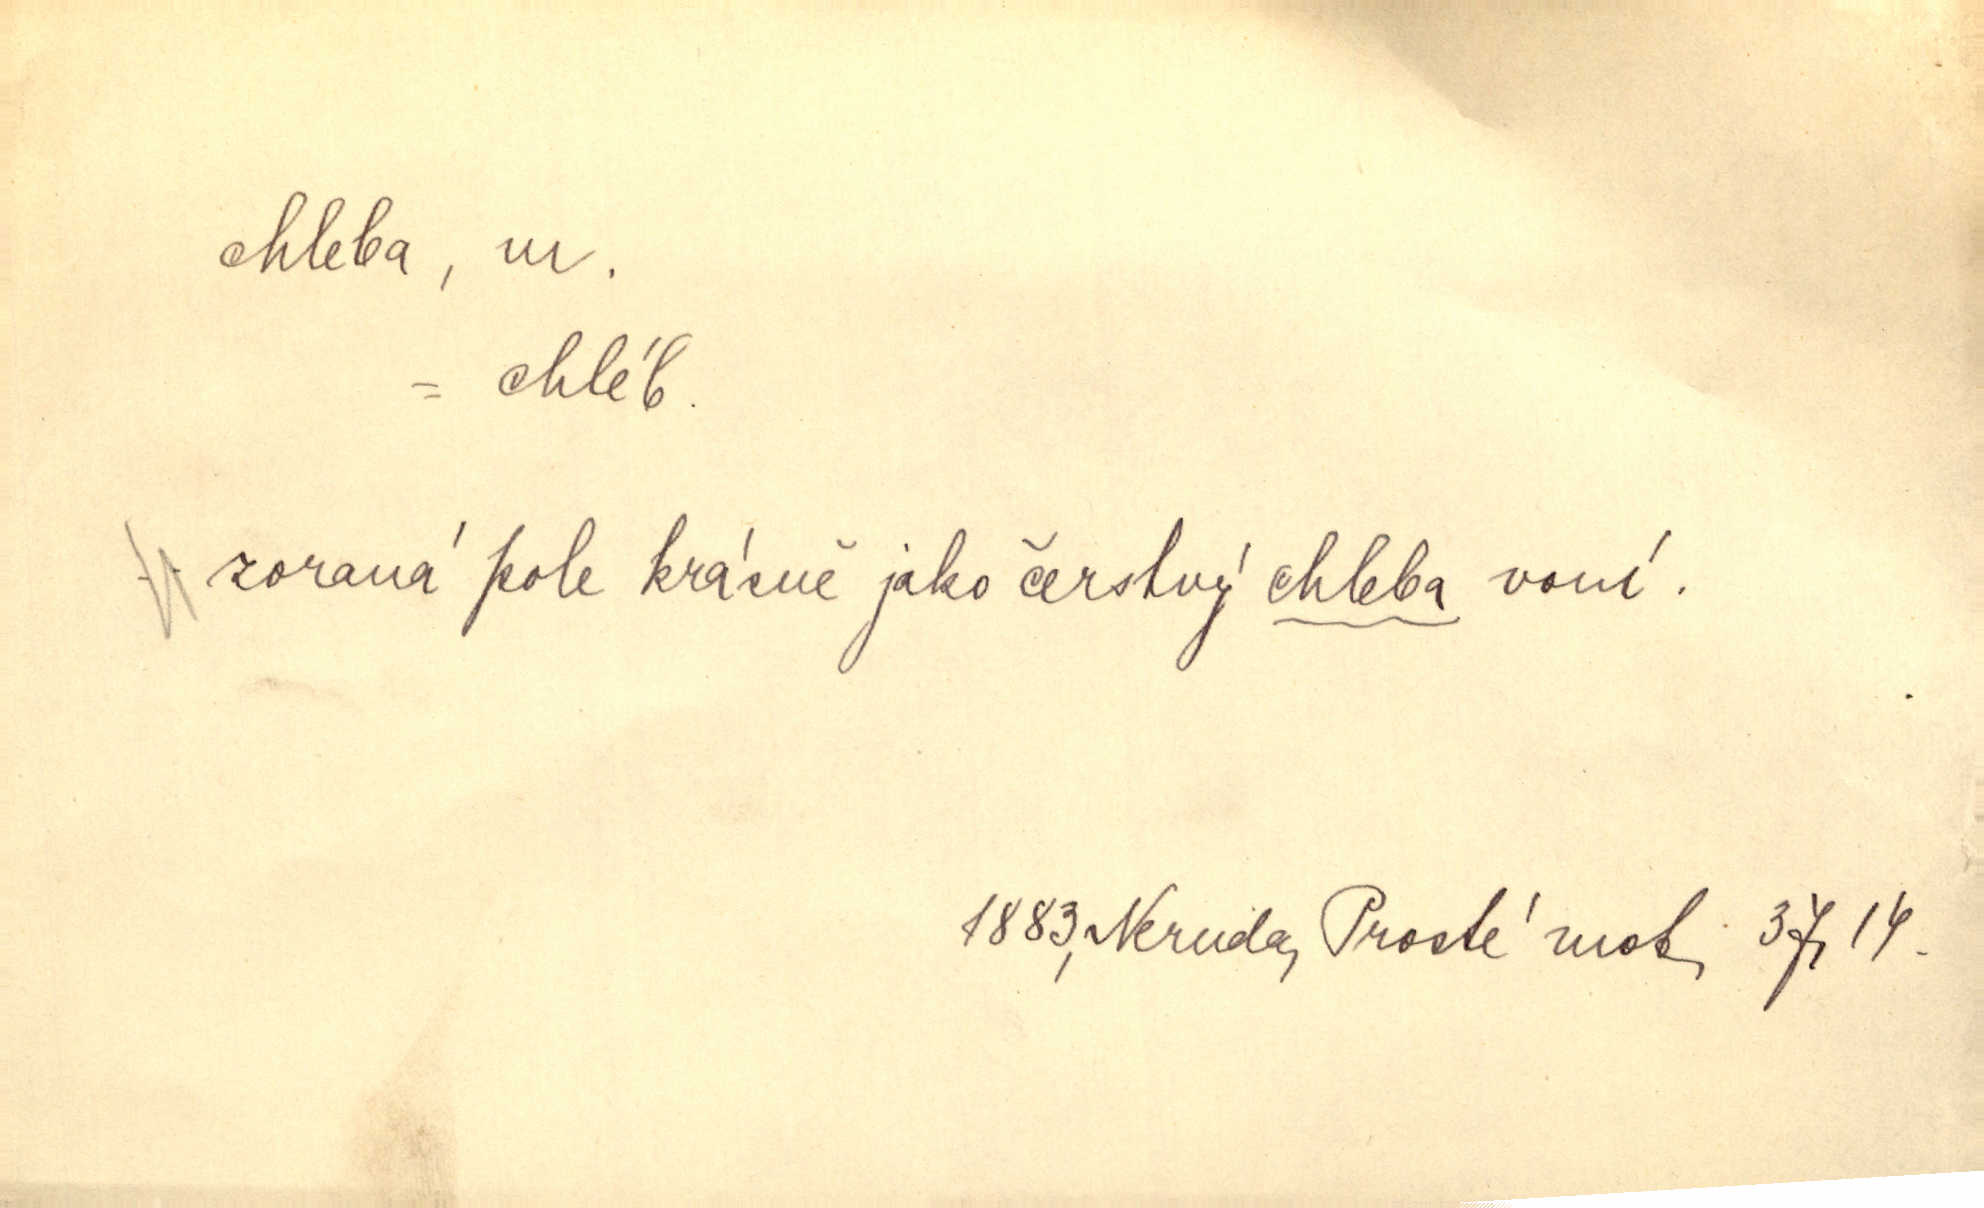 chleba, m.
= chléb.
zoraná pole krásně jako čerstvý chleba voní.
1883, Neruda, Prosté mot., 37, 14.